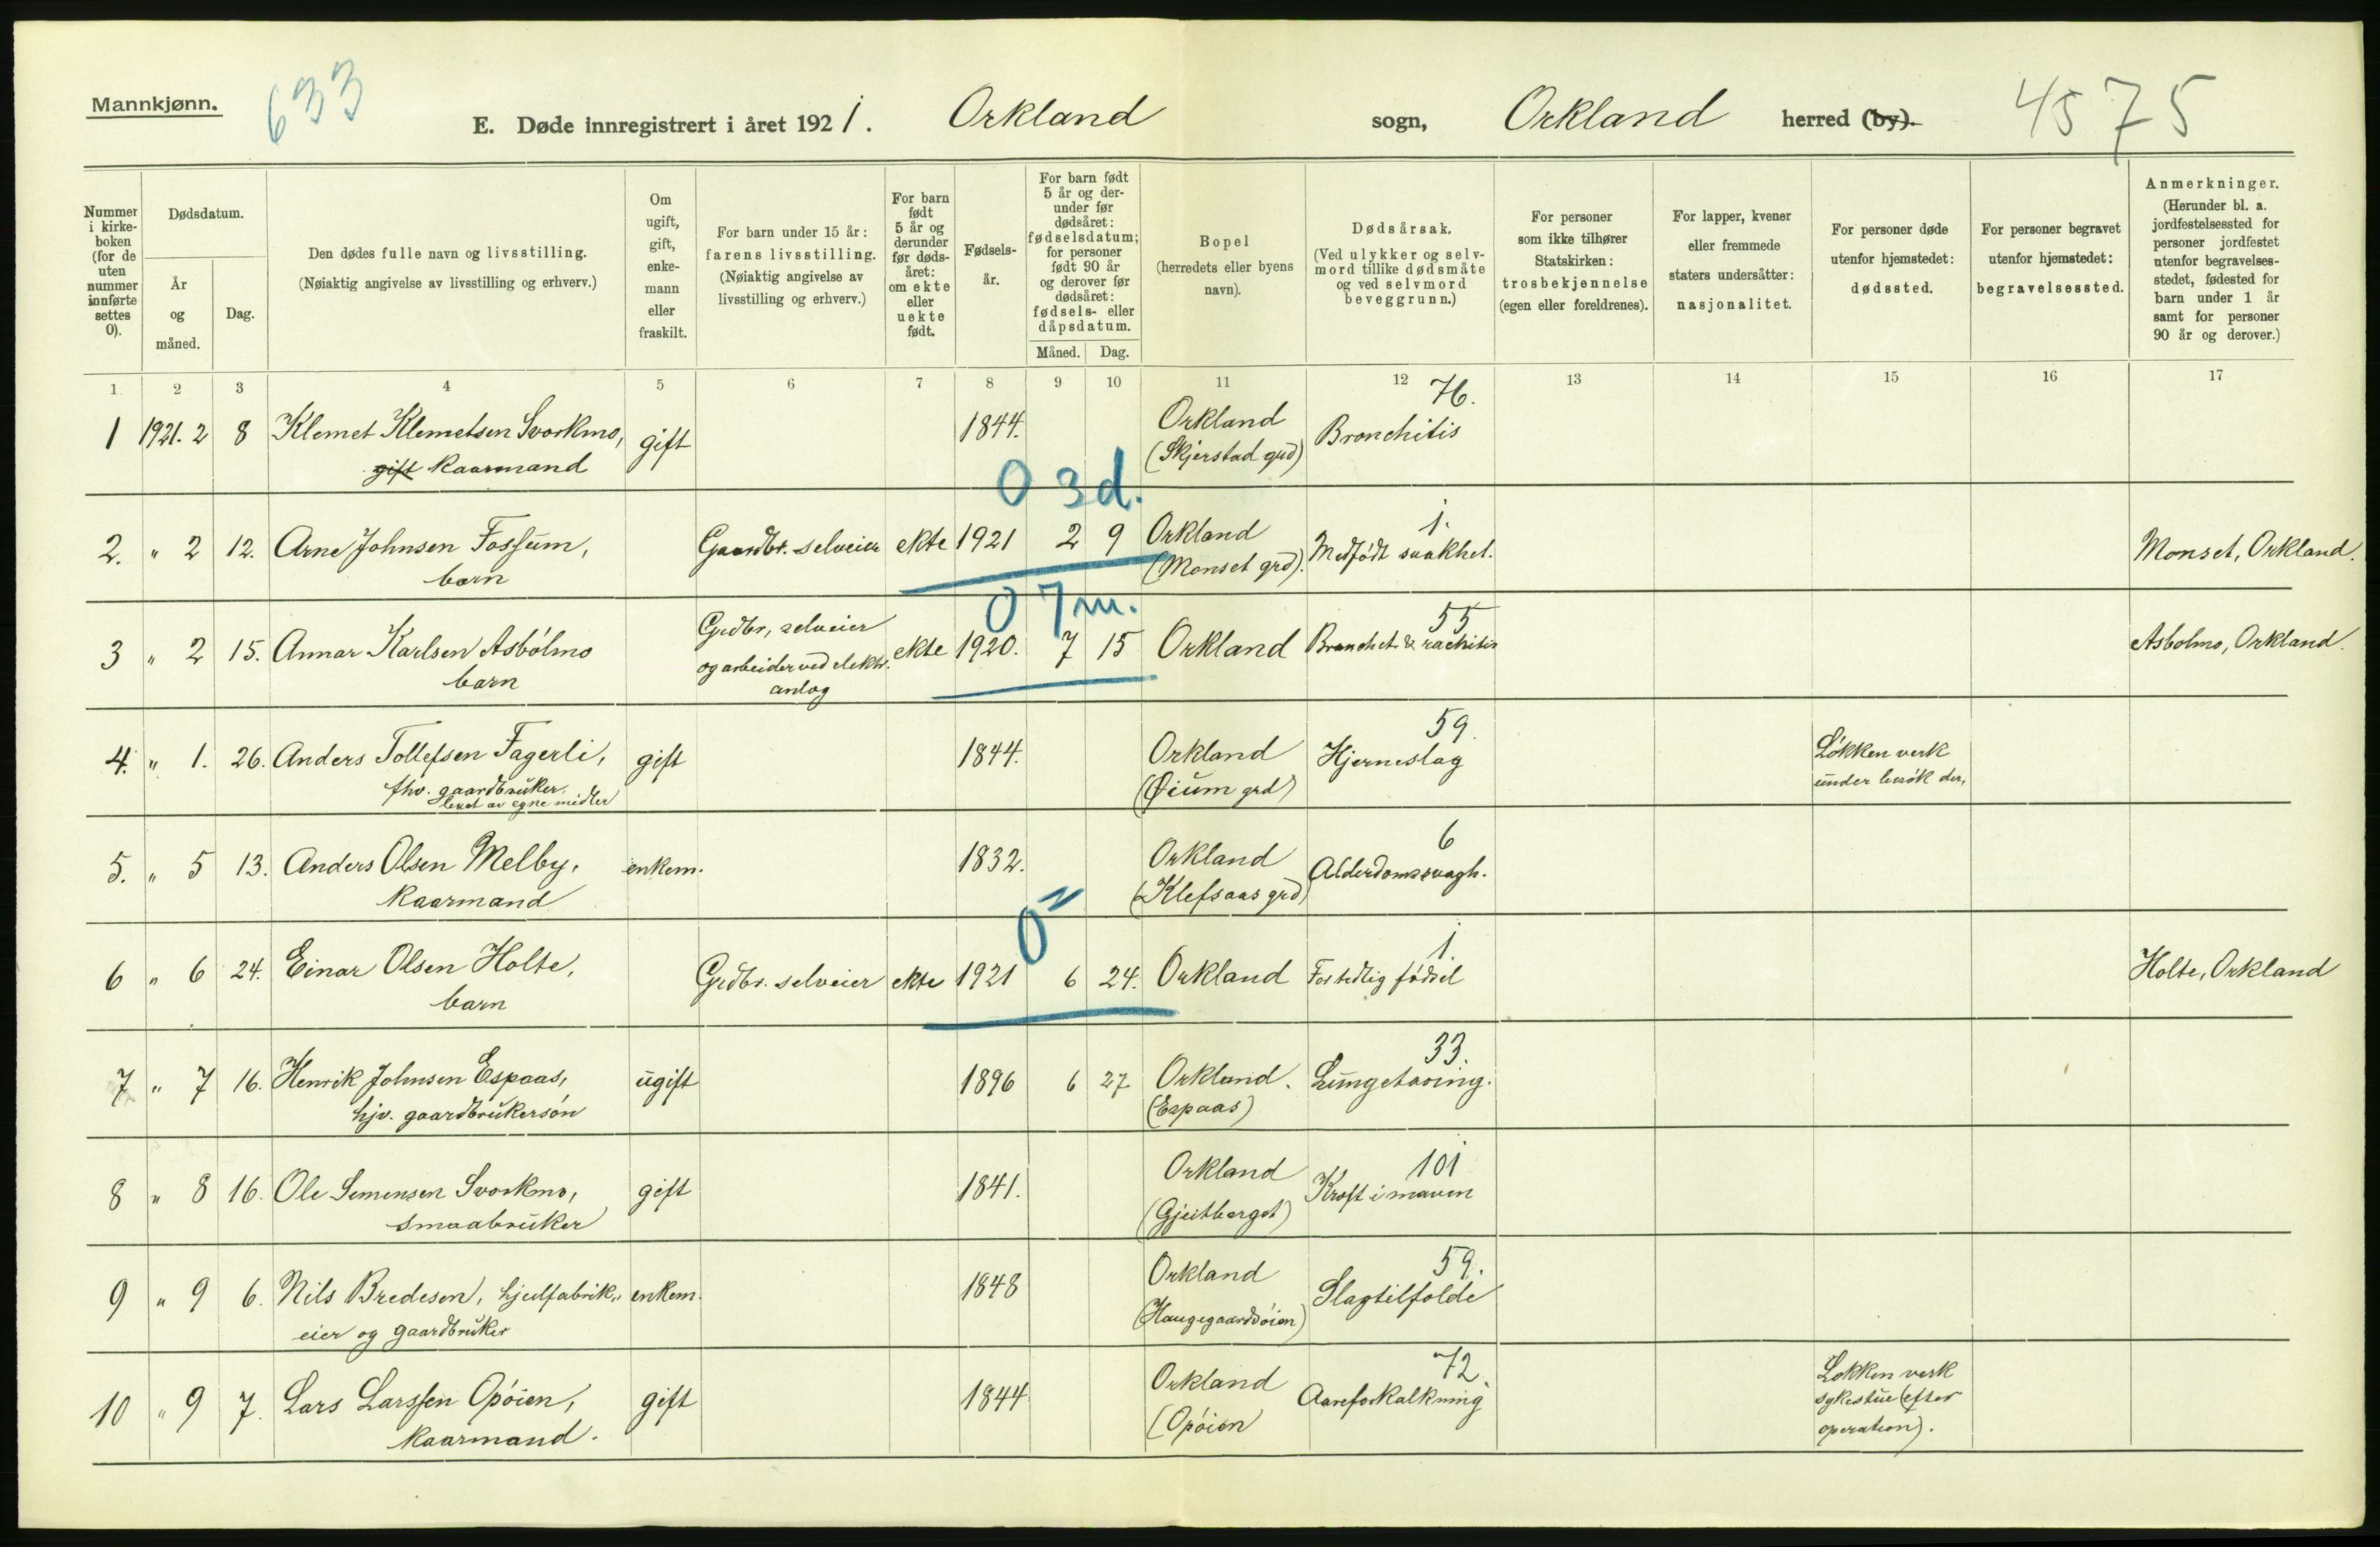 Mannkjønn.
633
E. Døde innregistrert i året 1921. Orkland sogn, Orkland herred (by).
4575
Nummer i kirkeboken (for de uten nummer innførte settes 0).
Dødsdatum.
År og måned.
Dag.
Den dødes fulle navn og livsstilling.
(Nøiaktig angivelse av livsstilling og erhverv.)
Om ugift, gift, enkemann eller fraskilt.
For barn under 15 år: farens livsstilling.
(Nøiaktig angivelse av livsstilling og erhverv.)
For barn født 5 år og derunder før dødsåret: om ekte eller uekte født.
Fødselsår.
For barn født 5 år og derunder før dødsåret: fødselsdatum; for personer født 90 år og derover før dødsåret: fødsels- eller dåpsdatum.
Måned. Dag.
Bopel
(herredets eller byens navn).
Dødsårsak.
(Ved ulykker og selvmord tillike dødsmåte og ved selvmord beveggrunn.)
For personer som ikke tilhører Statskirken: trosbekjennelse (egen eller foreldrenes).
For lapper, kvener eller fremmede staters undersåtter: nasjonalitet.
For personer døde utenfor hjemstedet: dødssted.
For personer begravet utenfor hjemstedet: begravelsessted.
Anmerkninger.
(Herunder bl. a. jordfestelsessted for personer jordfestet utenfor begravelsesstedet, fødested for barn under 1 år samt for personer 90 år og derover.)
1 2 3 4 5 6 7 8 9 10 11 12 13 14 15 16 17
1 1921. 2 8 Klemet Klemetsen Svorkmo, gift 1844. Orkland Bronchitis 76.
gift Kaarmand (Skjerstad grd)
0 3 d.
2. " 2 12. Arne Johnsen Fossum, Gaardbr. selveier ekte 1921 2 9 Orkland Medfødt svakhet. 1. Monset, Orkland.
barn (Monset grd).
0 7 m.
3 " 2 15. Annar Karlsen Asbölmo Grdbr, selveier ekte 1920. 7 15 Orkland Bronchit. & rachitis 55 Asbolmo, Orkland.
barn og arbeider ved elektr. anlæg
4. " 1. 26. Anders Tollefsen Fagerli, gift 1844. Orkland Hjerneslag 59. Løkken verk
fhv. gaardbruker, (Øium grd) under besøk der,
levet av egne midler
5. " 5 13. Anders Olsen Melby, enkem. 1832. Orkland Alderdomssvagh. 6
Kaarmand (Klefsaas grd)
0
6 " 6 24. Einar Olsen Holte, Grdbr. selveier ekte 1921 6 24. Orkland Fortidlig fødsel 1. Holte, Orkland
barn
7 " 7 16. Henrik Johnsen Espaas, ugift 1896 6 27 Orkland. Lungetæring. 33.
hjv. gaardbrukersøn (Espaas)
8 " 8 16. Ole Simensen Svorkmo, gift 1841. Orkland Kræft i maven 101
smaabruker (Gjeitberget)
9 " 9 6. Nils Bredesen, hjulfabrik- enkem. 1848 Orkland Slagtilfælde 59.
eier og gaardbruker (Haugegaardsøien)
10 " 9 7. Lars Larssen Opøien, gift 1844 Orkland Aareforkalkning 72. Løkken verk
Kaarmand. (Opøien sykestue (efter
operation).